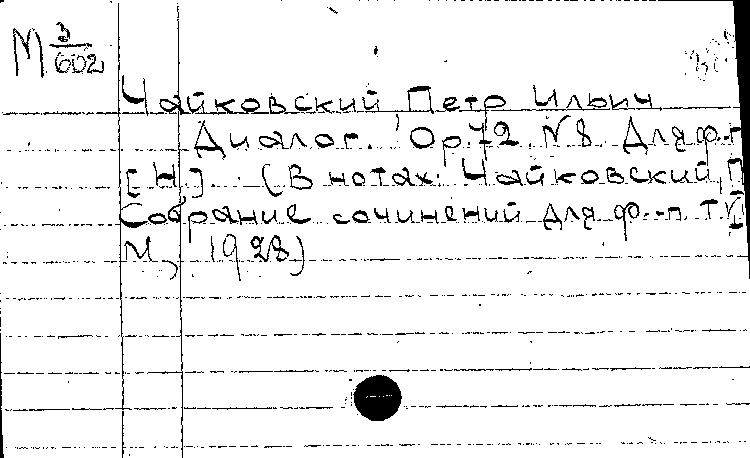 М 3/602
Чайковский, Петр Ильич
Диалог. Ор. 72 N 8. Для ф.-п
[Н]. (В нотах: Чайковский, П
Собрание сочинений для ф.-п. Т.
М., 1928)